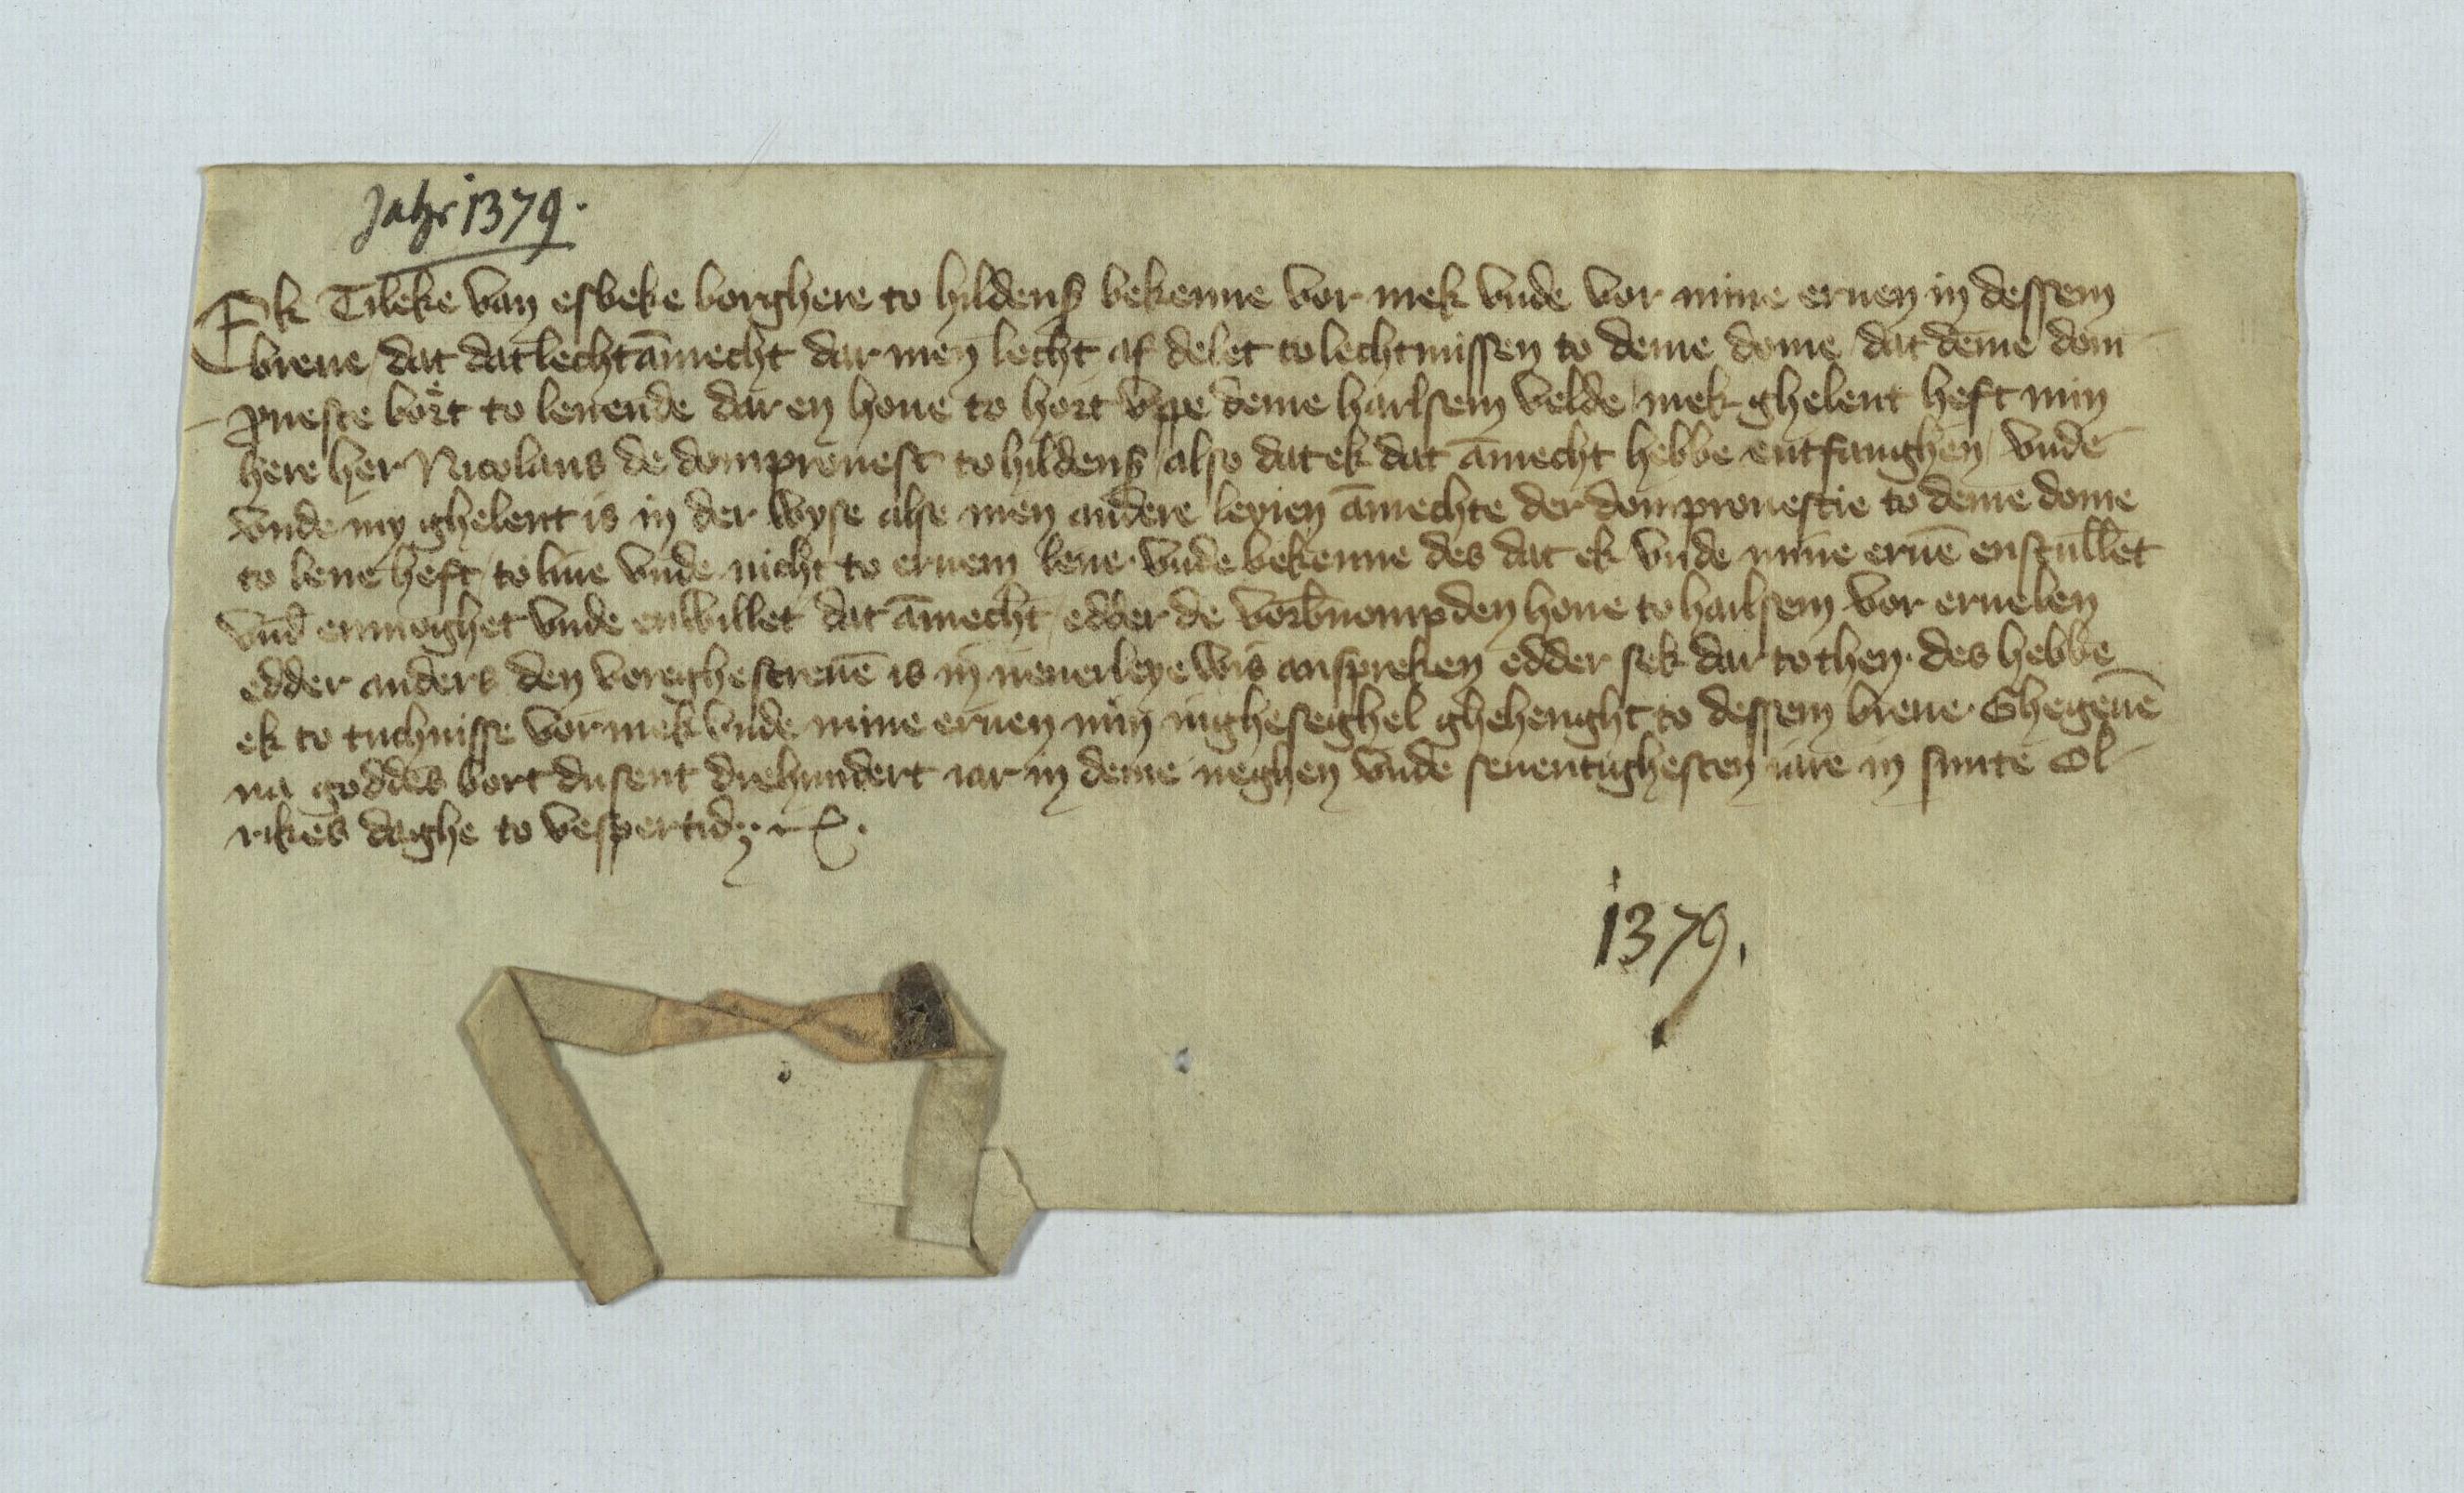 Jahr 1379.
Ek Tileke van esbeke borghere to hildenß bekenne vor mek vnde vor mine eruen in dessem
breue / dat dat lechtāmecht dar men lecht af delet to lechtmissen to deme dome / dat deme dom
prueste bort to lenende dar en houe to hort vppe deme harlsem velde / mek ghelent heft min
here her Nicolaus de domprouest to hildenß / also dat ek dat āmecht hebbe entfanghen / vnde
vnde my ghelent is in der wyse alse men andere leyien āmechte der domprouestie to deme dome
to lene heft / to liue vnde nicht to eruem lene · vnde bekenne des dat ek vnde mine eruē enscullet
vnd enmoghet vnde enwillet dat āmecht / edder de vorbnompden houe to harlsem vor eruelen
edder anders den vereghescreuē is in neuerleye wis anspreken edder sek dar to then · des hebbe
ek to tuchnisse vor mek vnde mine eruen min ingheseighel ghehenght to dessem breue · Ghegeuē
na goddes bort dusent drehundert iar in deme neghen vnde seuentighesten iare in sunte Ol-
rikes daghe to vespertid ·
1379.